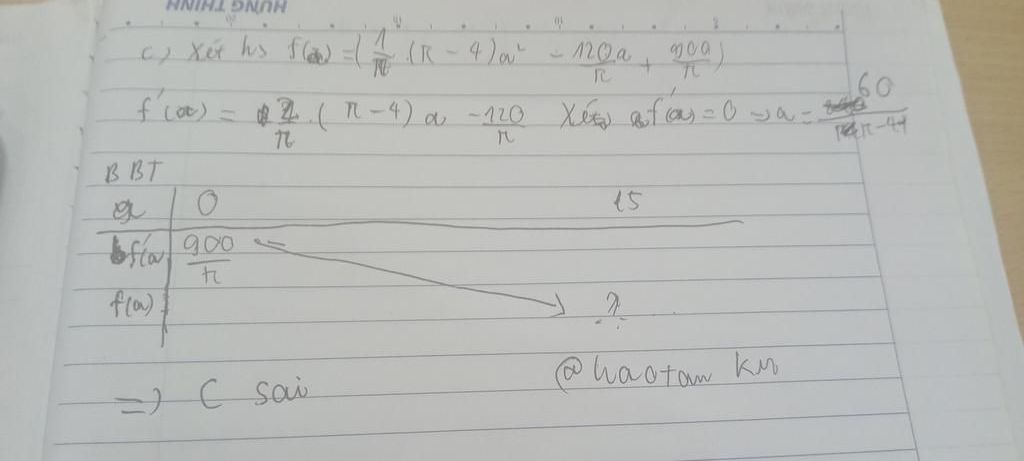 HƯNG THỊNH
c) Xét hs f(a) = ( 1/π (π - 4)a² - 120a/π + 900/π )
f'(a) = 2/π . (π - 4) a - 120/π Xét f'(a) = 0 => a = 60/π-4
BBT
a 0 15
f'(a) 900/π
f(a) ?
=> C sai @haotam km